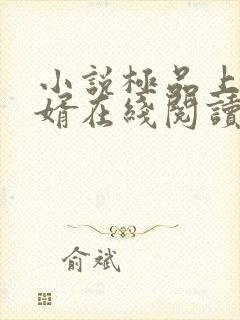 小說極品上
婿在綫閱讀
俞斌